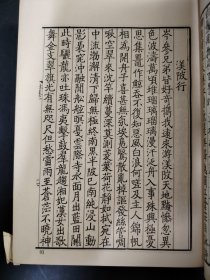 渼陂行
岑參兄弟皆好奇攜我遠來遊渼陂天地黤慘忽異
色波濤萬頃堆琉璃琉璃漫汗泛舟入事殊興極憂
思集鼉作鯨吞不復知惡風白浪何嗟及主人錦帆
相為開舟子喜甚無氛埃鳧鷖散亂棹謳發絲管啁
啾空翠來沈竿續縵深莫測菱葉荷花靜如拭宛在
中流渤澥清下歸無極終南黑半陂已南純浸山動
影裊窕冲融間船舷暝戛雲際寺水面月出藍田關
此時驪龍亦吐珠馮夷擊鼓羣龍趨湘妃漢女出歌
舞金支翠旗光有無咫尺但愁雷雨至蒼茫不曉神